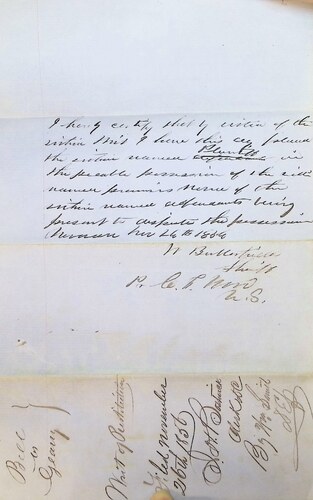 I hereby certify that by virtue of the
within Writ I have this day placed
the within named Plaintiff defendant in
the peaceable possession of the within
named premises none of the
within named defendants being
present to dispute the possession
Nov 26th 1856
W Butterfield
Sheriff
By C. F. Wood
U. S.
Bill
vs
Geary
Writ of Restitution
Filed November
26th 1856
Clerk
By Wm